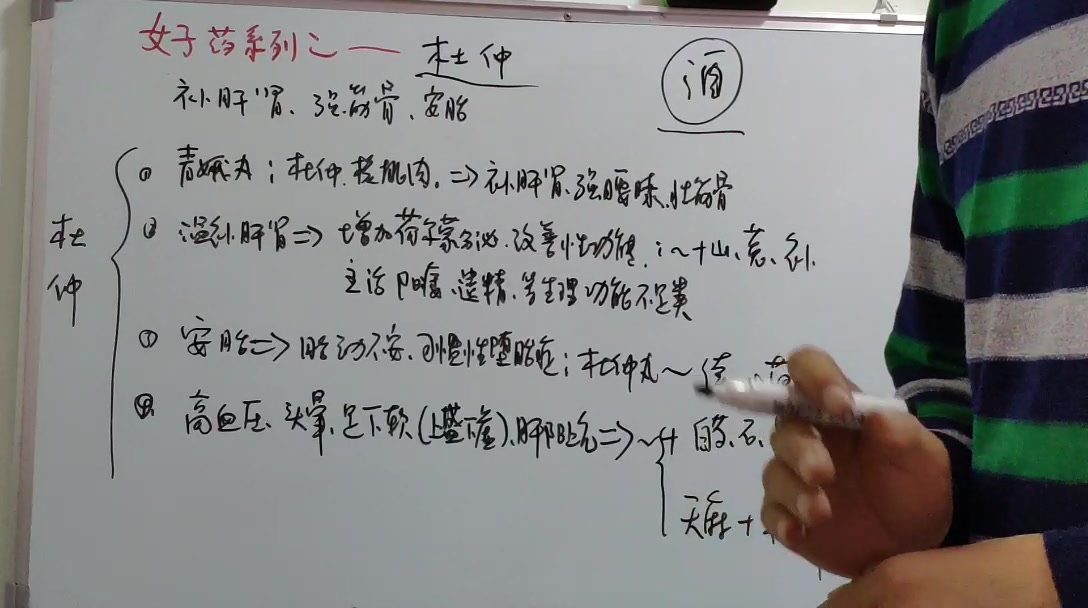 女子药系列之一 杜仲
酒
补肝肾、强筋骨、安胎
杜仲
① 青娥丸；杜仲、核桃肉。⇒补肝肾、强腰膝、壮筋骨
② 温补肝肾⇒增加荷尔蒙分泌、改善性功能；~+山、苁、
主治阳痿、遗精、等生理功能不足类
③ 安胎⇒胎动不安、习惯性堕胎症；杜仲丸~续
④ 高血压、头晕、足下软(上盛下虚)、肝阳上亢⇒~+白芍、石、
天麻+